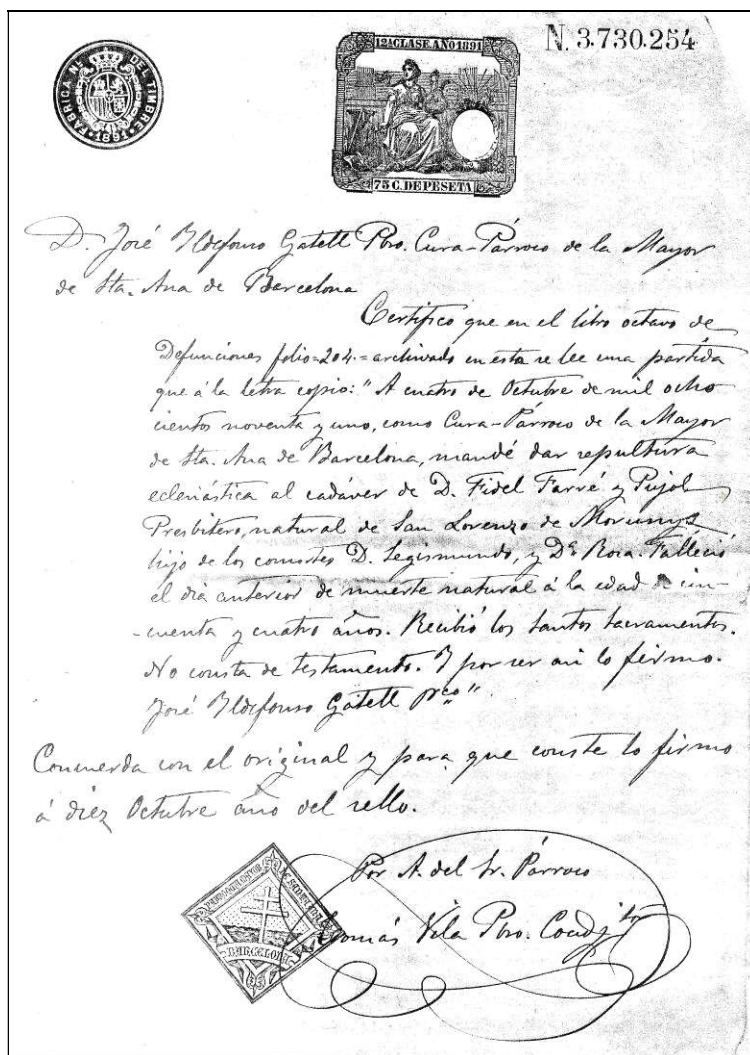 FABRICA NL. DEL TIMBRE
1891
12ª CLASE. AÑO 1891
75 C. DE PESETA
N. 3.730.254
D. José Yldefonso Gatell Pbro. Cura-Párroco de la Mayor
de Sta. Ana de Barcelona
Certifico que en el libro octavo de
Defunciones folio=204.= archivado en esta se lee una partida
que á la letra copio: "A cuatro de Octubre de mil ocho
cientos noventa y uno, como Cura-Párroco de la Mayor
de Sta. Ana de Barcelona, mandé dar sepultura
eclesiástica al cadáver de D. Fidel Farré y Pujol
Presbitero, natural de San Lorenzo de Morunys
hijo de los consortes D. Segismundo, y Dª Rosa. Falleció
el dia anterior de muerte natural á la edad cin-
-cuenta y cuatro años. Recibió los Santos Sacramentos.
No consta de testamento. Y por ser asi lo firmo.
José Yldefonso Gatell pbro"
Concuerda con el original y para que conste lo firmo
á diez Octubre año del sello.
Por A. del Sr. Párroco
Tomás Vila Pbro. Coadjtor
BARCELONA